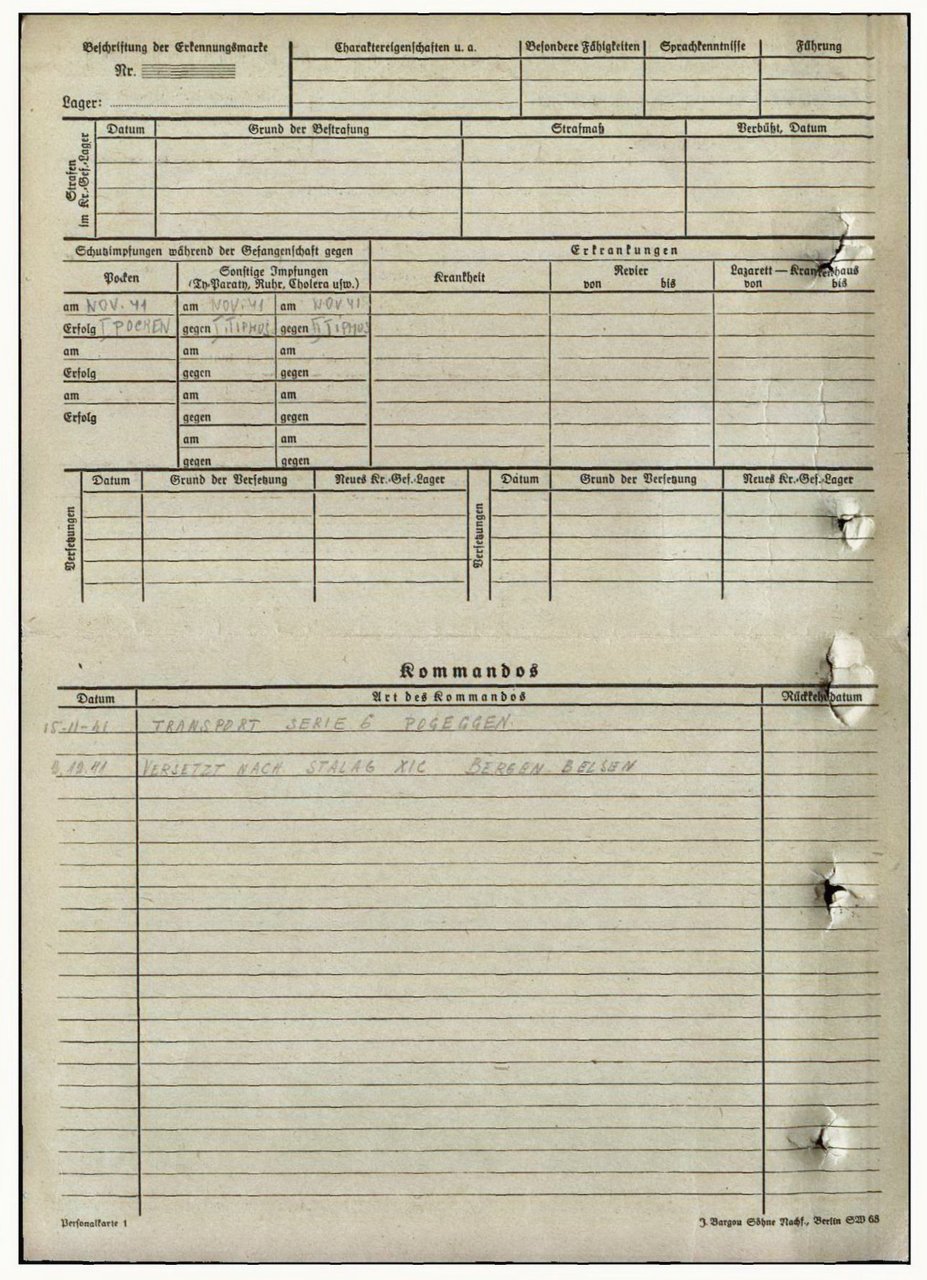 Beschriftung der Erkennungsmarke
Nr.
Lager:
Charaktereigenschaften u. a.
Besondere Fähigkeiten
Sprachkenntnisse
Führung
Strafen im Kr.-Gef.-Lager
Datum
Grund der Bestrafung
Strafmaß
Verbüßt, Datum
Schutzimpfungen während der Gefangenschaft gegen
Erkrankungen
Pocken
Sonstige Impfungen
(Ty-Paraty, Ruhr, Cholera usw.)
Krankheit
Revier
von bis
Lazarett — Krankenhaus
von bis
am NOV. 41 am NOV. 41 am NOV 41
Erfolg I POCHEN gegen I TIPHUS gegen II TIPHUS
am am am
Erfolg gegen gegen
am am am
Erfolg gegen gegen
am am
gegen gegen
Versetzungen
Datum
Grund der Versetzung
Neues Kr.-Gef.-Lager
Versetzungen
Datum
Grund der Versetzung
Neues Kr.-Gef.-Lager
Kommandos
Datum
Art des Kommandos
Rückkehrdatum
15-11-41 TRANSPORT SERIE 6 POGEGGEN.
12.41 VERSETZT NACH STALAG XIC BERGEN BELSEN
Personalkarte 1
J. Bargou Söhne Nachf., Berlin SW 68